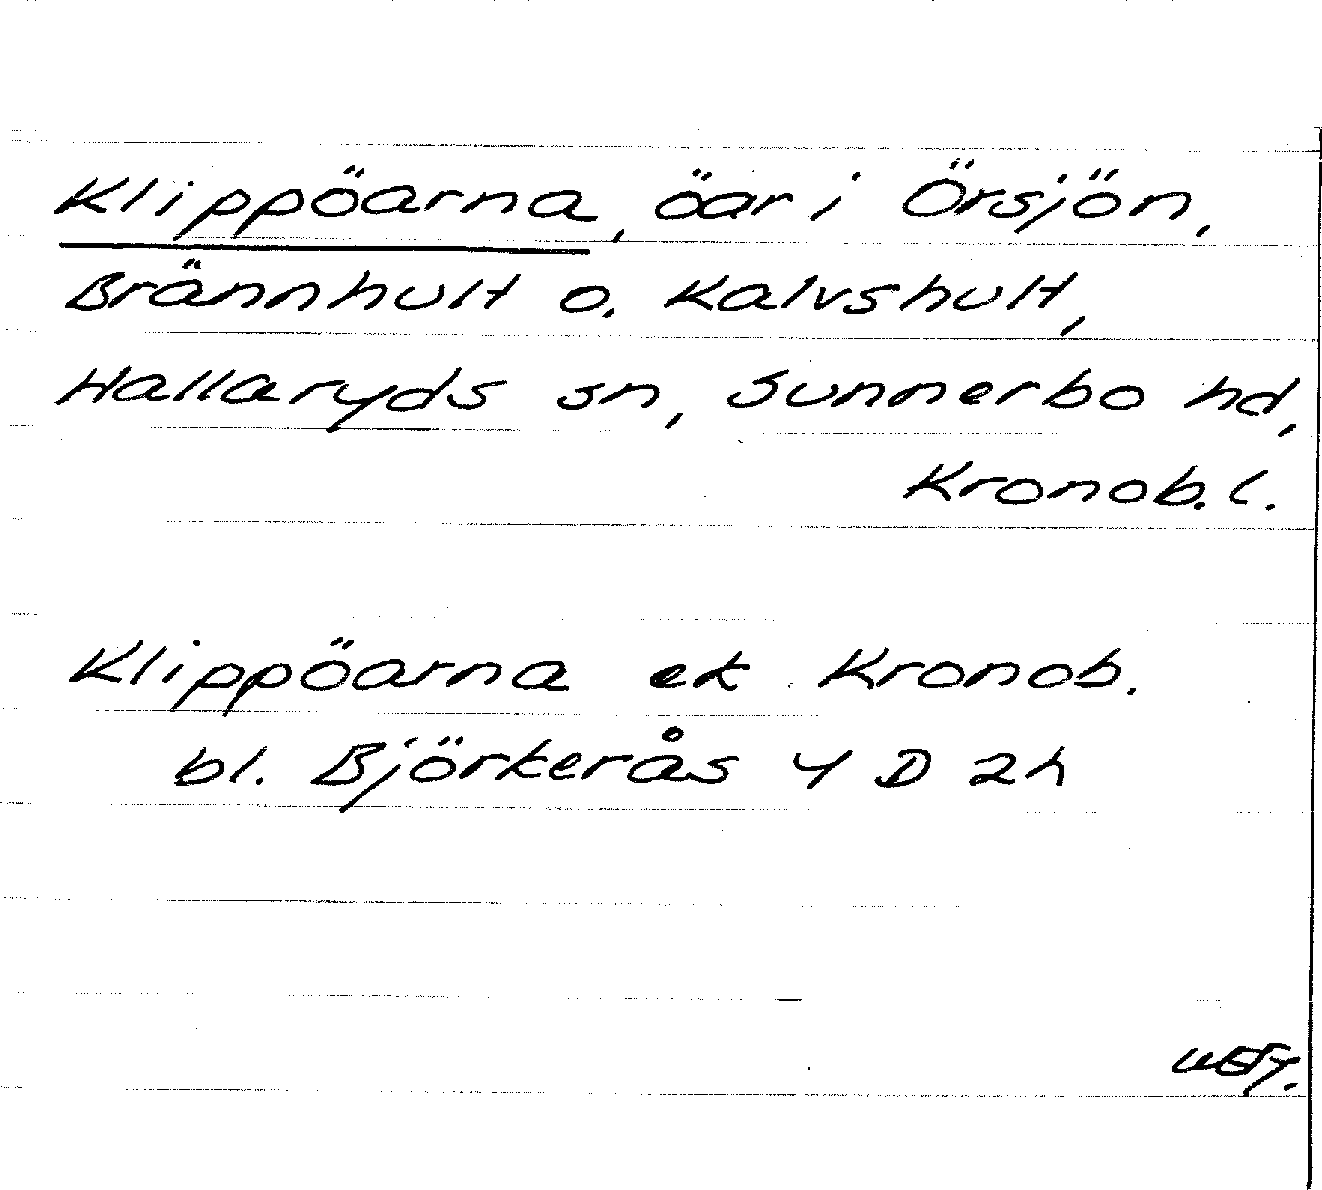 Klippöarna, öar i Örsjön,
Brännhult o. Kalvshult,
Hallaryds sn, Sunnerbo hd,
Kronob. l.
Klippöarna ek Kronob.
bl. Björkerås 4 D 2h